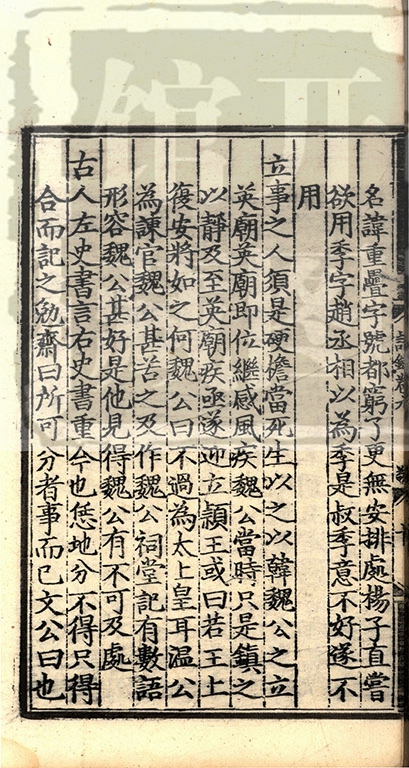 名諱重疊字號都窮了更無安排處楊子直嘗
欲用季字趙丞相以為季是叔季意不好遂不
用
立事之人須是硬擔當死生以之以韓魏公之立
英廟英廟即位繼感風疾魏公當時只是鎮之
以靜及至英廟疾亟遂迎立頴王或曰若王上
復安將如之何魏公曰不過為太上皇耳溫公
為諫官魏公甚苦之及作魏公祠堂記有數語
形容魏公甚好是他見得魏公有不可及處
古人左史書言右史書事今也恁地分不得只得
合而記之勉齋曰所可分者事而已文公曰也